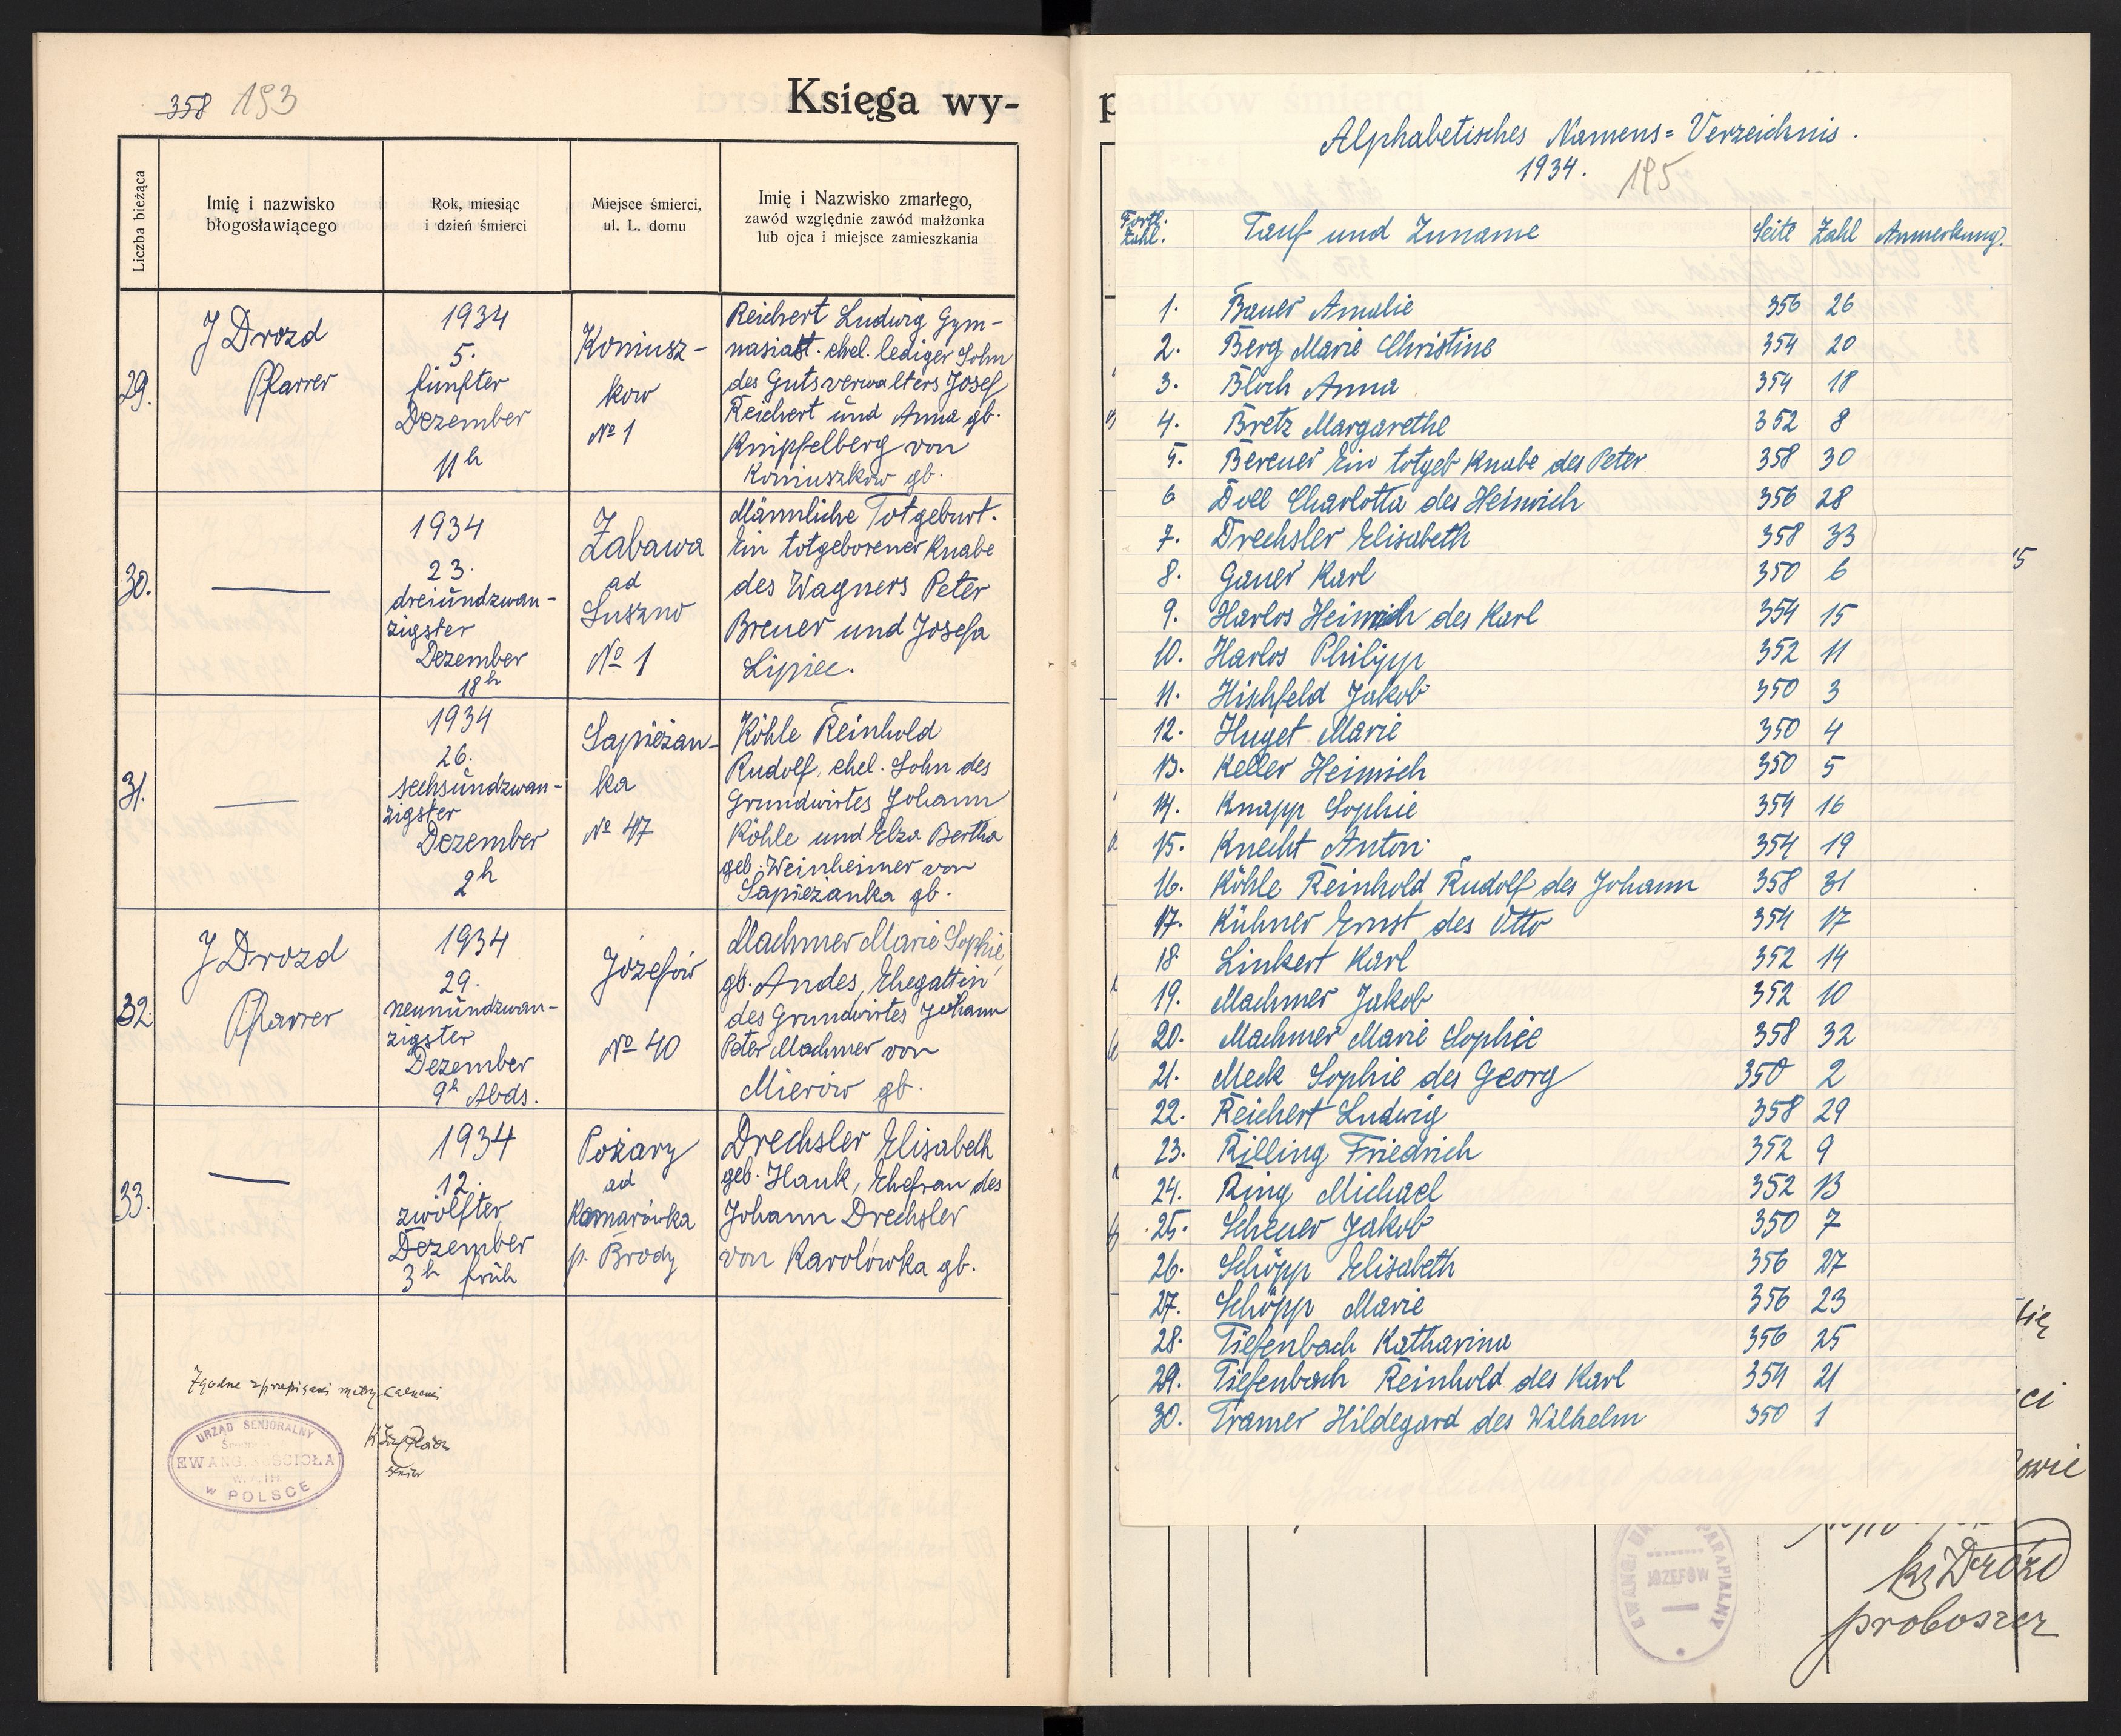 358 193
Księga wy-
Liczba bieżąca
Imię i nazwisko
błogosławiącego
Rok, miesiąc
i dzień śmierci
Miejsce śmierci,
ul. L. domu
Imię i Nazwisko zmarłego,
zawód względnie zawód małżonka
lub ojca i miejsce zamieszkania
29.
J Drozd
Pfarrer
1934
5.
fünfter
Dezember
11h
Koniusz-
kow
No 1
Reichert Ludwig Gym-
nasiast. ehel. lediger Sohn
des Gutsverwalters Josef
Reichert und Anna gb.
Knipfelberg von
Koniuszkow gb.
30.
1934
23.
dreiundzwan-
zigster
Dezember
18h
Zabawa
ad
Suszno
No 1
Männliche Totgeburt.
Ein totgeborener Knabe
des Wagners Peter
Brener und Josefa
Lipiec.
31.
1934
26.
sechsundzwan-
zigster
Dezember
2h
Sapieżan-
ka
No 47
Köhle Reinhold
Rudolf, ehel. Sohn des
Grundwirtes Johann
Köhle und Elza Bertha
geb. Weinheimer von
Sapieżanka gb.
32.
J Drozd
Pfarrer
1934
29.
neunundzwan-
zigster
Dezember
9h Abds.
Józefów
No 40
Machmer Marie Sophie
gb. Andes, Ehegattin
des Grundwirtes Johann
Peter Machmer von
Mierów gb.
33.
1934
12.
zwölfter
Dezember
3h früh
Pożary
ad
Komarówka
p. Brody
Drechsler Elisabeth
geb. Hauk, Ehefrau des
Johann Drechsler
von Karolówka gb.
Zgodne z
URZĄD SENJORALNY
EWANG. KOŚCIOŁA
W POLSCE
p
Alphabetisches Namens=Verzeichnis.
1934. 195
Fortl. Zahl. Tauf und Zuname Seite Zahl Anmerkung.
1. Bauer Amalie 356 26
2. Berg Marie Christine 354 20
3. Bloch Anna 354 18
4. Bretz Margarethe 352 8
5. Berener Ein totgeb Knabe des Peter 358 30
6 Doll Charlotta des Heinrich 356 28
7. Drechsler Elisabeth 358 33
8. Gauer Karl 350 6
9. Harlos Heinrich des Karl 354 15
10. Harlos Philipp 352 11
11. Hischfeld Jakob 350 3
12. Huget Marie 350 4
13. Keller Heinrich 350 5
14. Knapp Sophie 354 16
15. Knecht Anton 354 19
16. Köhle Reinhold Rudolf des Johann 358 31
17. Kühner Ernst des Otto 354 17
18. Linkert Karl 352 14
19. Machmer Jakob 352 10
20. Machmer Marie Sophie 358 32
21. Meck Sophie des Georg 350 2
22. Reichert Ludwig 358 29
23. Rilling Friedrich 352 9
24. Ring Michael 352 13
25. Scheuer Jakob 350 7
26. Schöpp Elisabeth 356 27
27. Schöpp Marie 356 23
28. Tiefenbach Katharina 356 25
29. Tiefenbach Reinhold des Karl 354 21
30. Tramer Hildegard des Wilhelm 350 1
EWANG. PARAFIALNY
JÓZEFÓW
ks Drozd
proboszcz